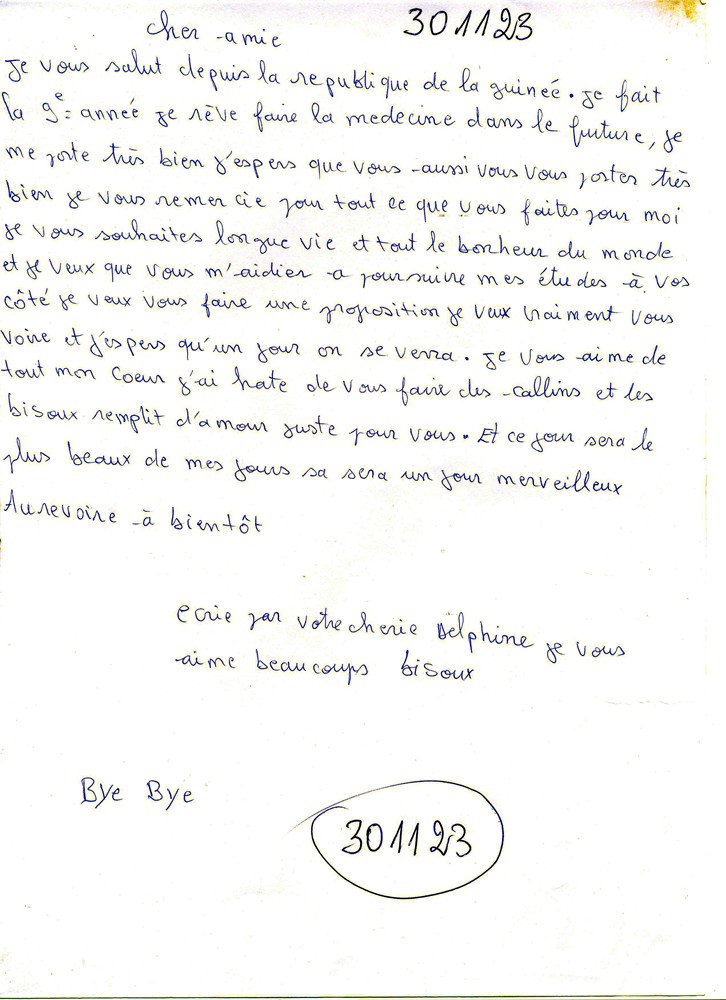 cher -amie 301123
Je vous salut depuis la republique de la guineé. Je fait
la 9e= année je rêve faire la medecine dans le furture, je
me porte très bien j'espers que vous -aussi vous vous portes très
bien je vous remer cie pour tout ce que vous faites pour moi
je vous souhaites longue vie et tout le bonheur du monde
et je veux que vous m'aidier -a poursuivre mes études -à vos
côté je veux vous faire une proposition je veux vraiment vous
voire et j'espers qu'un jour on se verra. Je vous -aime de
tout mon coeur j'ai hate de vous faire des -callins et les
bisoux remplit d'amour juste pour vous. Et ce jour sera le
plus beaux de mes jours sa sera un jour merveilleux
Aurevoire -à bientôt
ecrie par votre cherie Delphine je vous
-aime beaucoups bisoux
Bye Bye
301123